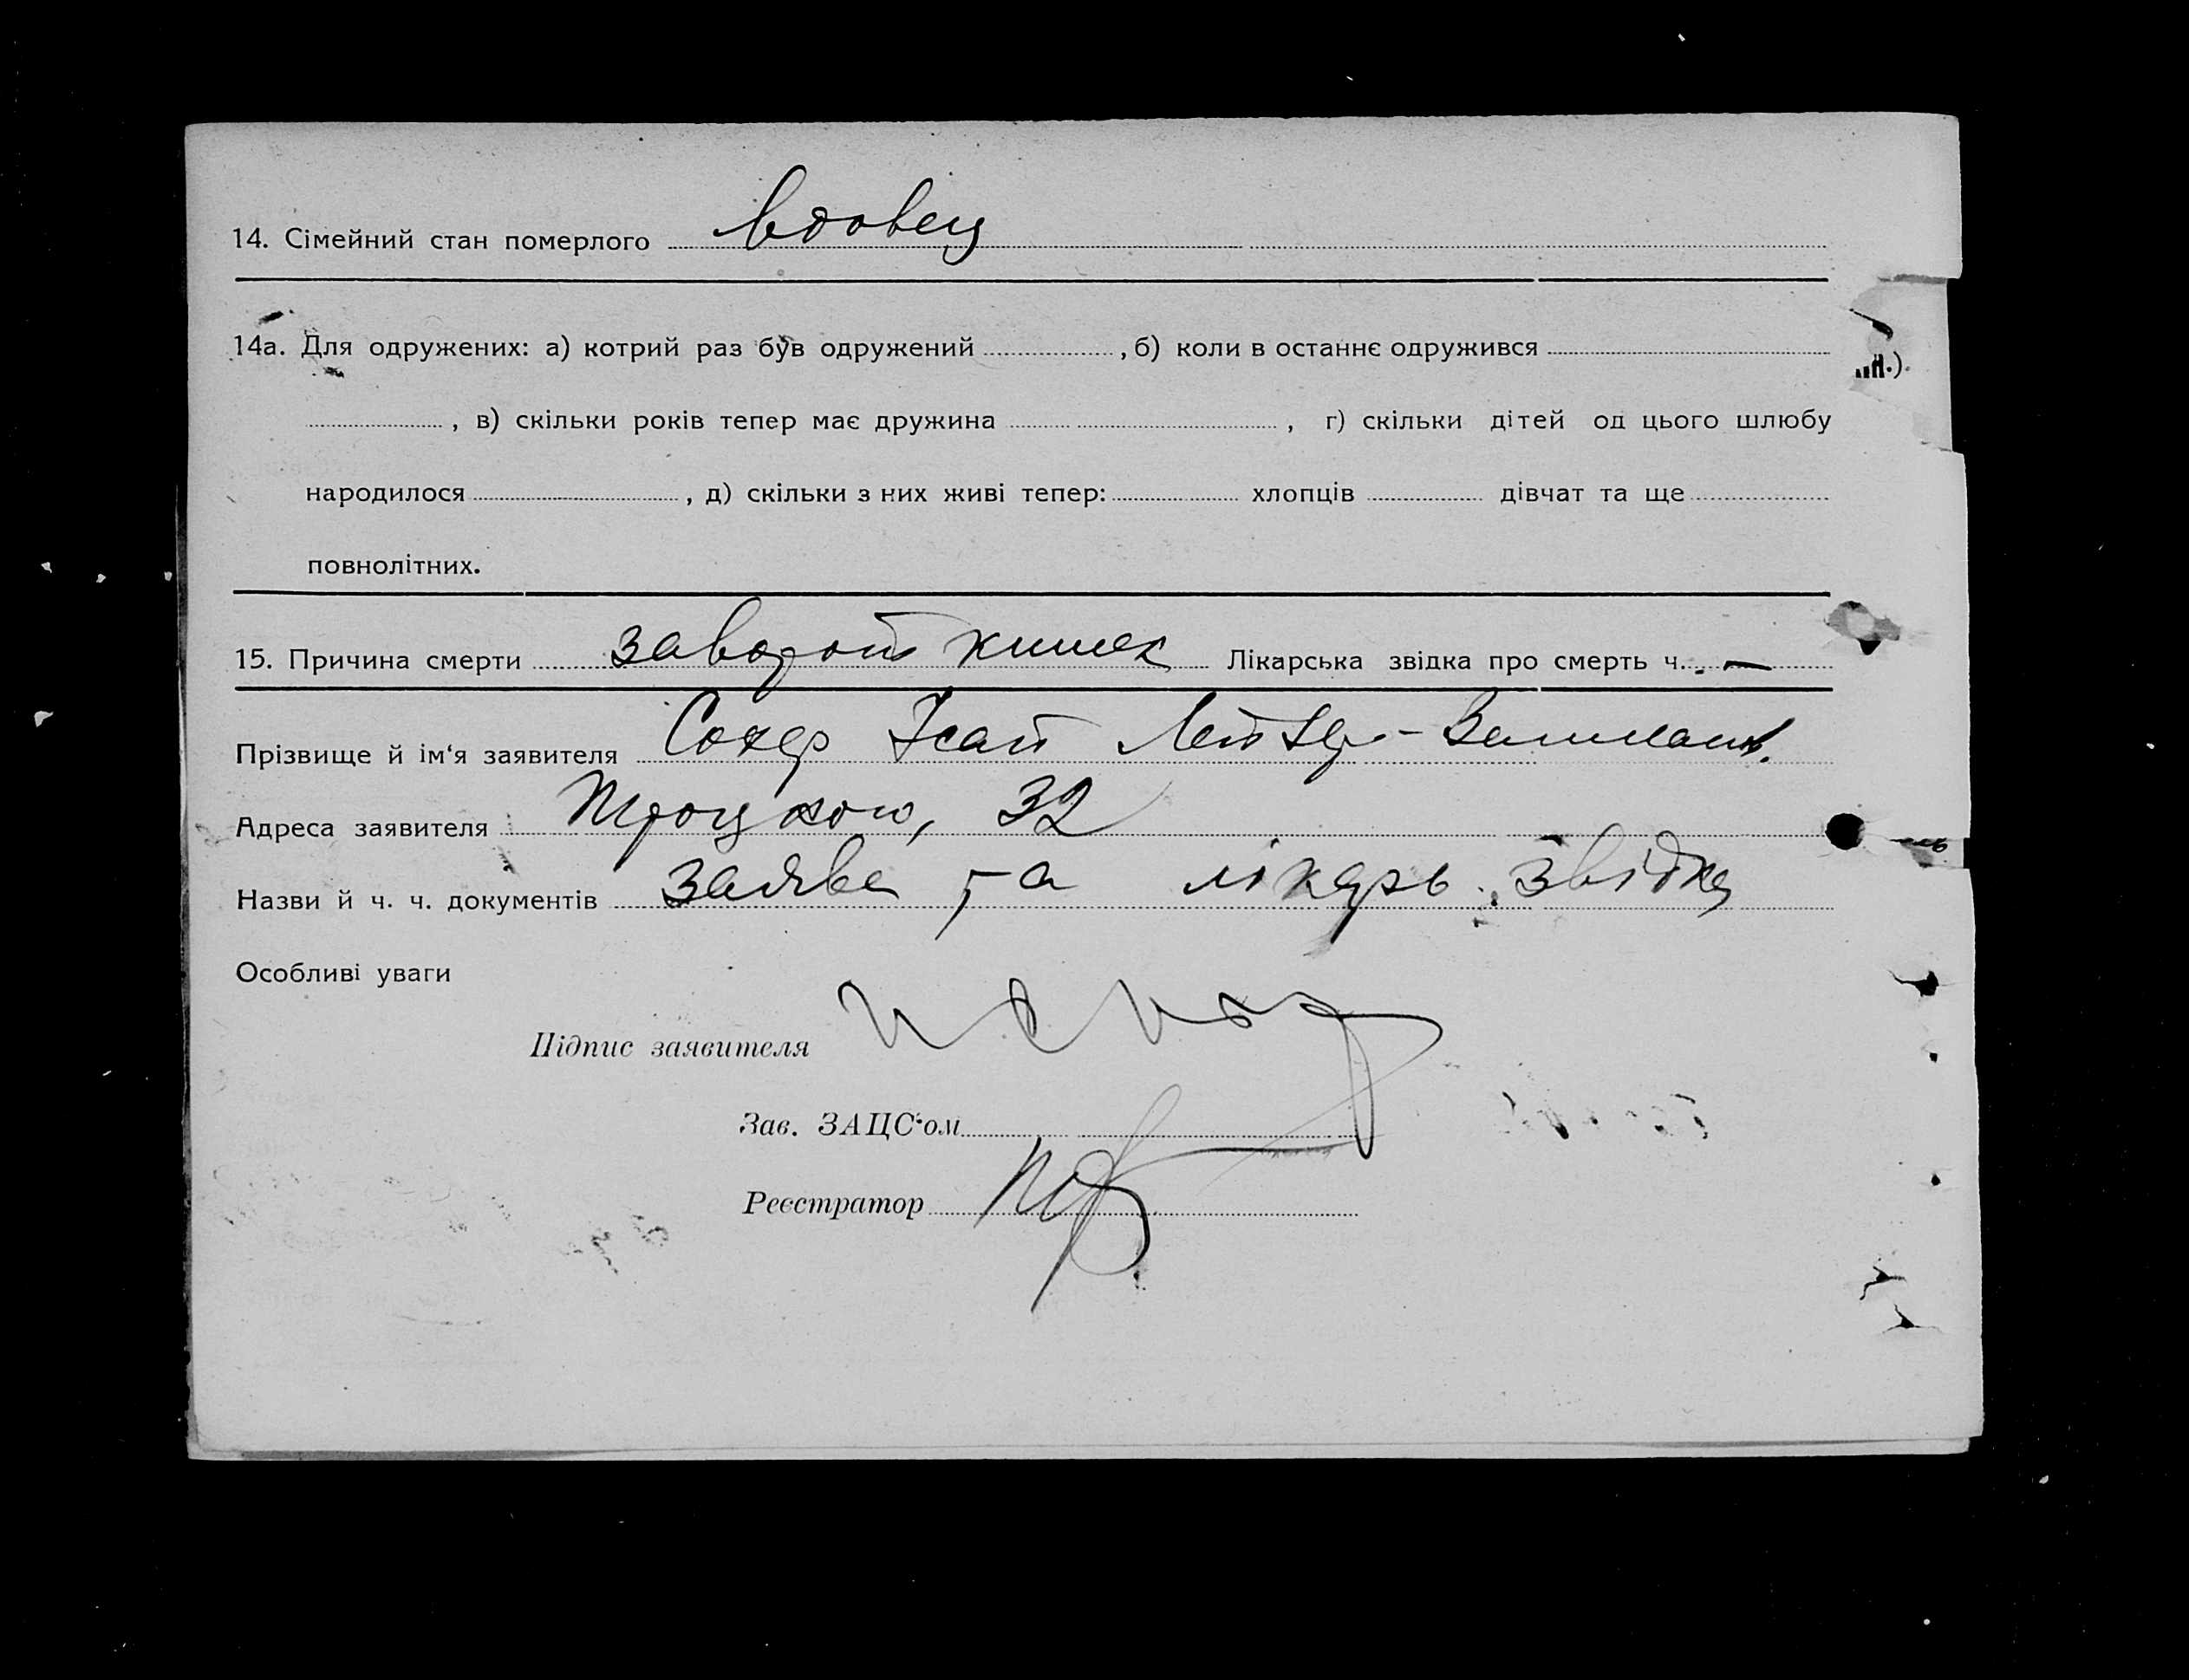 14. Сімейний стан померлого вдовец
14а. Для одружених: а) котрий раз був одружений , б) коли в останнє одружився
, в) скільки років тепер має дружина , г) скільки дітей од цього шлюбу
народилося , д) скільки з них живі тепер: хлопців дівчат та ще
повнолітних.
15. Причина смерти заворот кишек Лікарська звідка про смерть ч. —
Прізвище й ім‘я заявителя Сокер
Адреса заявителя Троцкого, 32
Назви й ч. ч. документів заява та лікарь. звідка
Особливі уваги
Підпис заявителя
Зав. ЗАЦС‘ом
Реєстратор